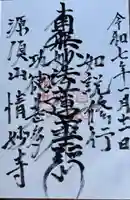 令和七年一月十一日
如説修行
南無妙法蓮華経
功徳
源頂山情妙寺